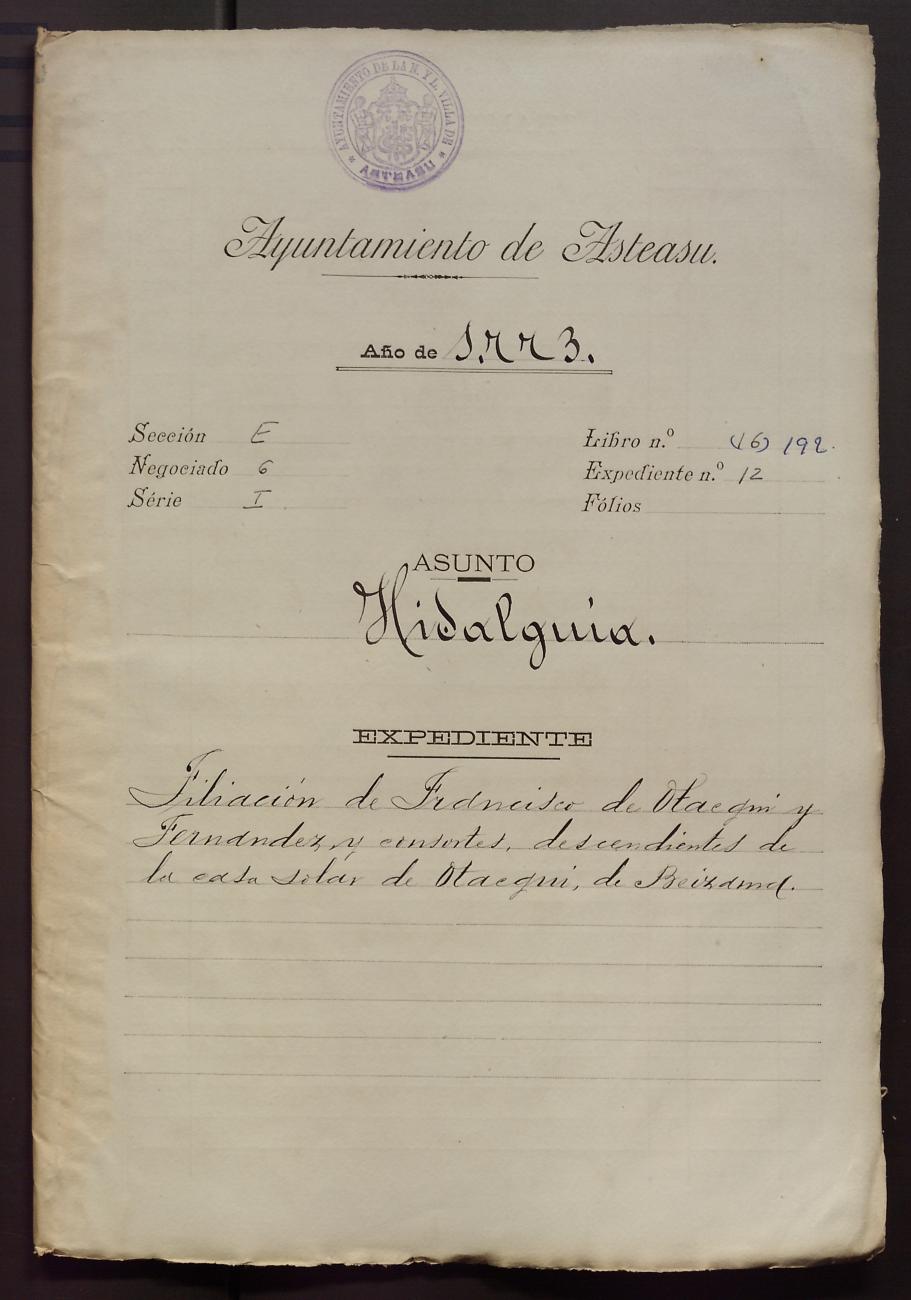 AYUNTAMIENTO DE LA N. Y L. VILLA DE
* ASTEASU *
Ayuntamiento de Asteasu.
Año de 1.773.
Sección E
Negociado 6
Série I
Libro n.º (16) 192.
Expediente n.º 12
Fólios
ASUNTO
Hidalguía.
EXPEDIENTE
Filiación de Francisco de Otaegui y
Fernandez, y consortes, descendientes de
la casa solár de Otaegui, de Beizama.